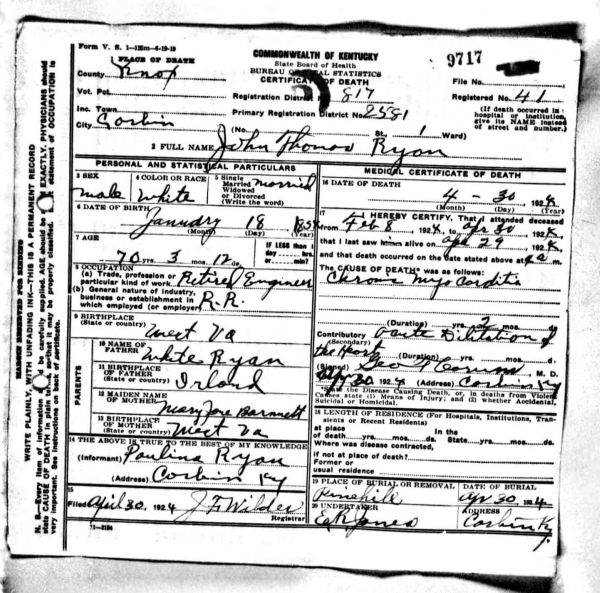 Form V. S. 1-125m-4-19-19
PLACE OF DEATH
COMMONWEALTH OF KENTUCKY
State Board of Health
BUREAU OF VITAL STATISTICS
CERTIFICATE OF DEATH
9717
County Knox
File No.
Vot. Pct.
Registration District No. 817
Registered No. 41
Inc. Town
Primary Registration District No. 2581
City Corbin
(No. St., 1 Ward)
(If death occurred in hospital or institution give its NAME instead of street and number.)
2 FULL NAME John Thomas Ryan
PERSONAL AND STATISTICAL PARTICULARS
3 SEX male
4 COLOR OR RACE White
5 Single Married Widowed or Divorced (Write the word) married
6 DATE OF BIRTH January 18
(Month) (Day) (Year)
7 AGE 70 yrs. 3 mos. 12 ds.
IF LESS than 1 day hrs. or min.
8 OCCUPATION
(a) Trade, profession or particular kind of work Retired Engineer
(b) General nature of industry, business or establishment in which employed (or employer) R.R.
9 BIRTHPLACE
(State or country) West Va
PARENTS
10 NAME OF FATHER White Ryan
11 BIRTHPLACE OF FATHER
(State or country) Irland
12 MAIDEN NAME OF MOTHER Mary Jane
13 BIRTHPLACE OF MOTHER
(State or country) West Va
14 THE ABOVE IS TRUE TO THE BEST OF MY KNOWLEDGE
(Informant) Paulina Ryan
(Address) Corbin Ky
15
Filed April 30, 1924 J F Wilder
Registrar
11-3184
MEDICAL CERTIFICATE OF DEATH
16 DATE OF DEATH
4 - 30, 1924
(Month) (Day) (Year)
17 I HEREBY CERTIFY, That I attended deceased
from Feb 8, 1924, to Apr 30, 1924,
that I last saw alive on Apr 29, 1924,
and that death occurred on the date stated above at m.
The CAUSE OF DEATH* was as follows:
Chronic Myo Carditis
(Duration) yrs. 2 mos. ds.
Contributory Acute Dilitation of
(Secondary)
the Heart (Duration) yrs. mos. ds.
(Signed) Geo, M. D.
Apr 30, 1924 (Address) Corbin Ky
*State the Disease Causing Death, or, in deaths from Violent Causes state (1) Means of Injury; and (2) whether Accidental, Suicidal or Homicidal.
18 LENGTH OF RESIDENCE (For Hospitals, Institutions, Transients or Recent Residents)
At place of death yrs. mos. ds. In the State yrs. mos. ds.
Where was disease contracted,
if not at place of death?
Former or
usual residence
19 PLACE OF BURIAL OR REMOVAL Pinehill
DATE OF BURIAL Apr 30, 1924
20 UNDERTAKER E R Jones
ADDRESS Corbin Ky
MARGIN RESERVED FOR BINDING
WRITE PLAINLY, WITH UNFADING INK—THIS IS A PERMANENT RECORD
N. B.—Every item of information should be carefully supplied. AGE should be stated EXACTLY. PHYSICIANS should state CAUSE OF DEATH in plain terms, so that it may be properly classified. Exact statement of OCCUPATION is very important. See instructions on back of certificate.